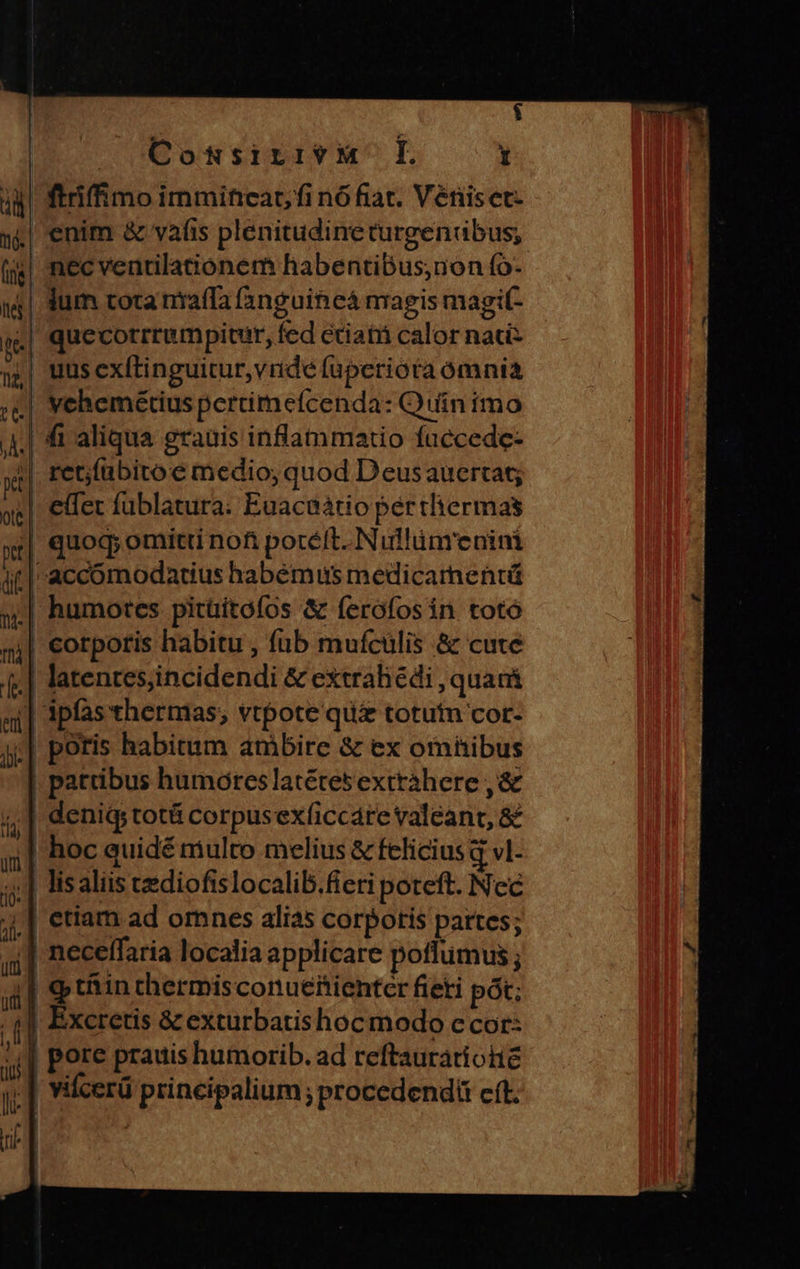 Consilivm I.
ſtriſſimo immineat, ſi nō fiat. Venis et-
enim & vaſis plenitudine turgentibus,
nec ventilationem habentibus, non ſo-
lum tota maſſa ſanguineá magis magiſ-
que corrrumpitur, ſed etiam calor nati-
uus exſtinguitur, vnde ſuperiora omnia
vehemētius pertimeſcenda: Quin imo
ſi aliqua grauis inflammatio ſuccede-
ret, ſubito é medio, quod Deus auertat,
eſſet ſublatura. Euacuatio per thermas
quoq; omitti non poteſt. Nullum enim
accōmodatius habemus medicamentū
humores pituitoſos & ſeroſos in toto
corporis habitu, ſub muſculis & cute
latentes, incidendi & extrahēdi, quam
ipſas thermas, vtpote quæ totum cor-
poris habitum ambire & ex omnibus
partibus humores latētes extrahere, &
deniq; totū corpus exſiccare valeant, &
hoc quidē multo melius & felicius q̃ vl-
lis aliis tædioſis localib. fieri poteſt. Nec
etiam ad omnes alias corporis partes,
neceſſaria localia applicare poſſumus,
ꝙ tñ in thermis conuenienter fieri pōt.
Excretis & exturbatis hoc modo e cor-
pore prauis humorib. ad reſtaurationē
viſcerū principalium, procedendū eſt.